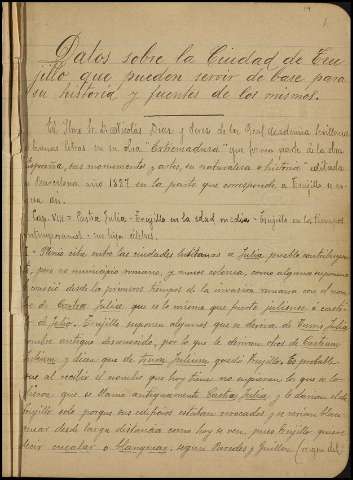 Datos sobre la Ciudad de Tru
jillo que pueden servir de base para
su historia y fuentes de los mismos.
El Ilmo Sr. D. Nicolás Diaz y Perez de la Real
buenos libros en su obra "Extremadura" que forma parte de la obra
España, sus monumentos y artes, su naturaleza é historia" editada
Barcelona año 1887 en la parte que corresponde a Trujillo
Cap. VIII = Castra Julia - Trujillo en la edad media - Trujillo en los tiempos
contemporaneos - sus hijos célebres.
Plinio cita entre las ciudades lusitanas a Julia pueblo contribuyen
te, pero no municipio romano, y menos colonia, como algunos suponen
conoció desde los primeros tiempos de la invasion romana con el nom
de Castra Julia, que es lo mismo que fuerte julience ó casti
Julio. Trujillo suponen algunos que se deriva de Turris Julia
nombre antiguo desconocido, por lo que le derivan otros de Castrum
Julium y dicen que de Turim Julium quedó Trujillo. Es probable
que al recibir el nombre que hoy tiene no supieran los que a
que se llamó antiguamente Castra Julia, y le daran el de
Trujillo solo porque sus edificios estaban enjocados y se verian blan
quear desde larga distancia como hoy se ven, pues Trujillo quiere
decir encalar o blanquear, segun Paredes y Guillen